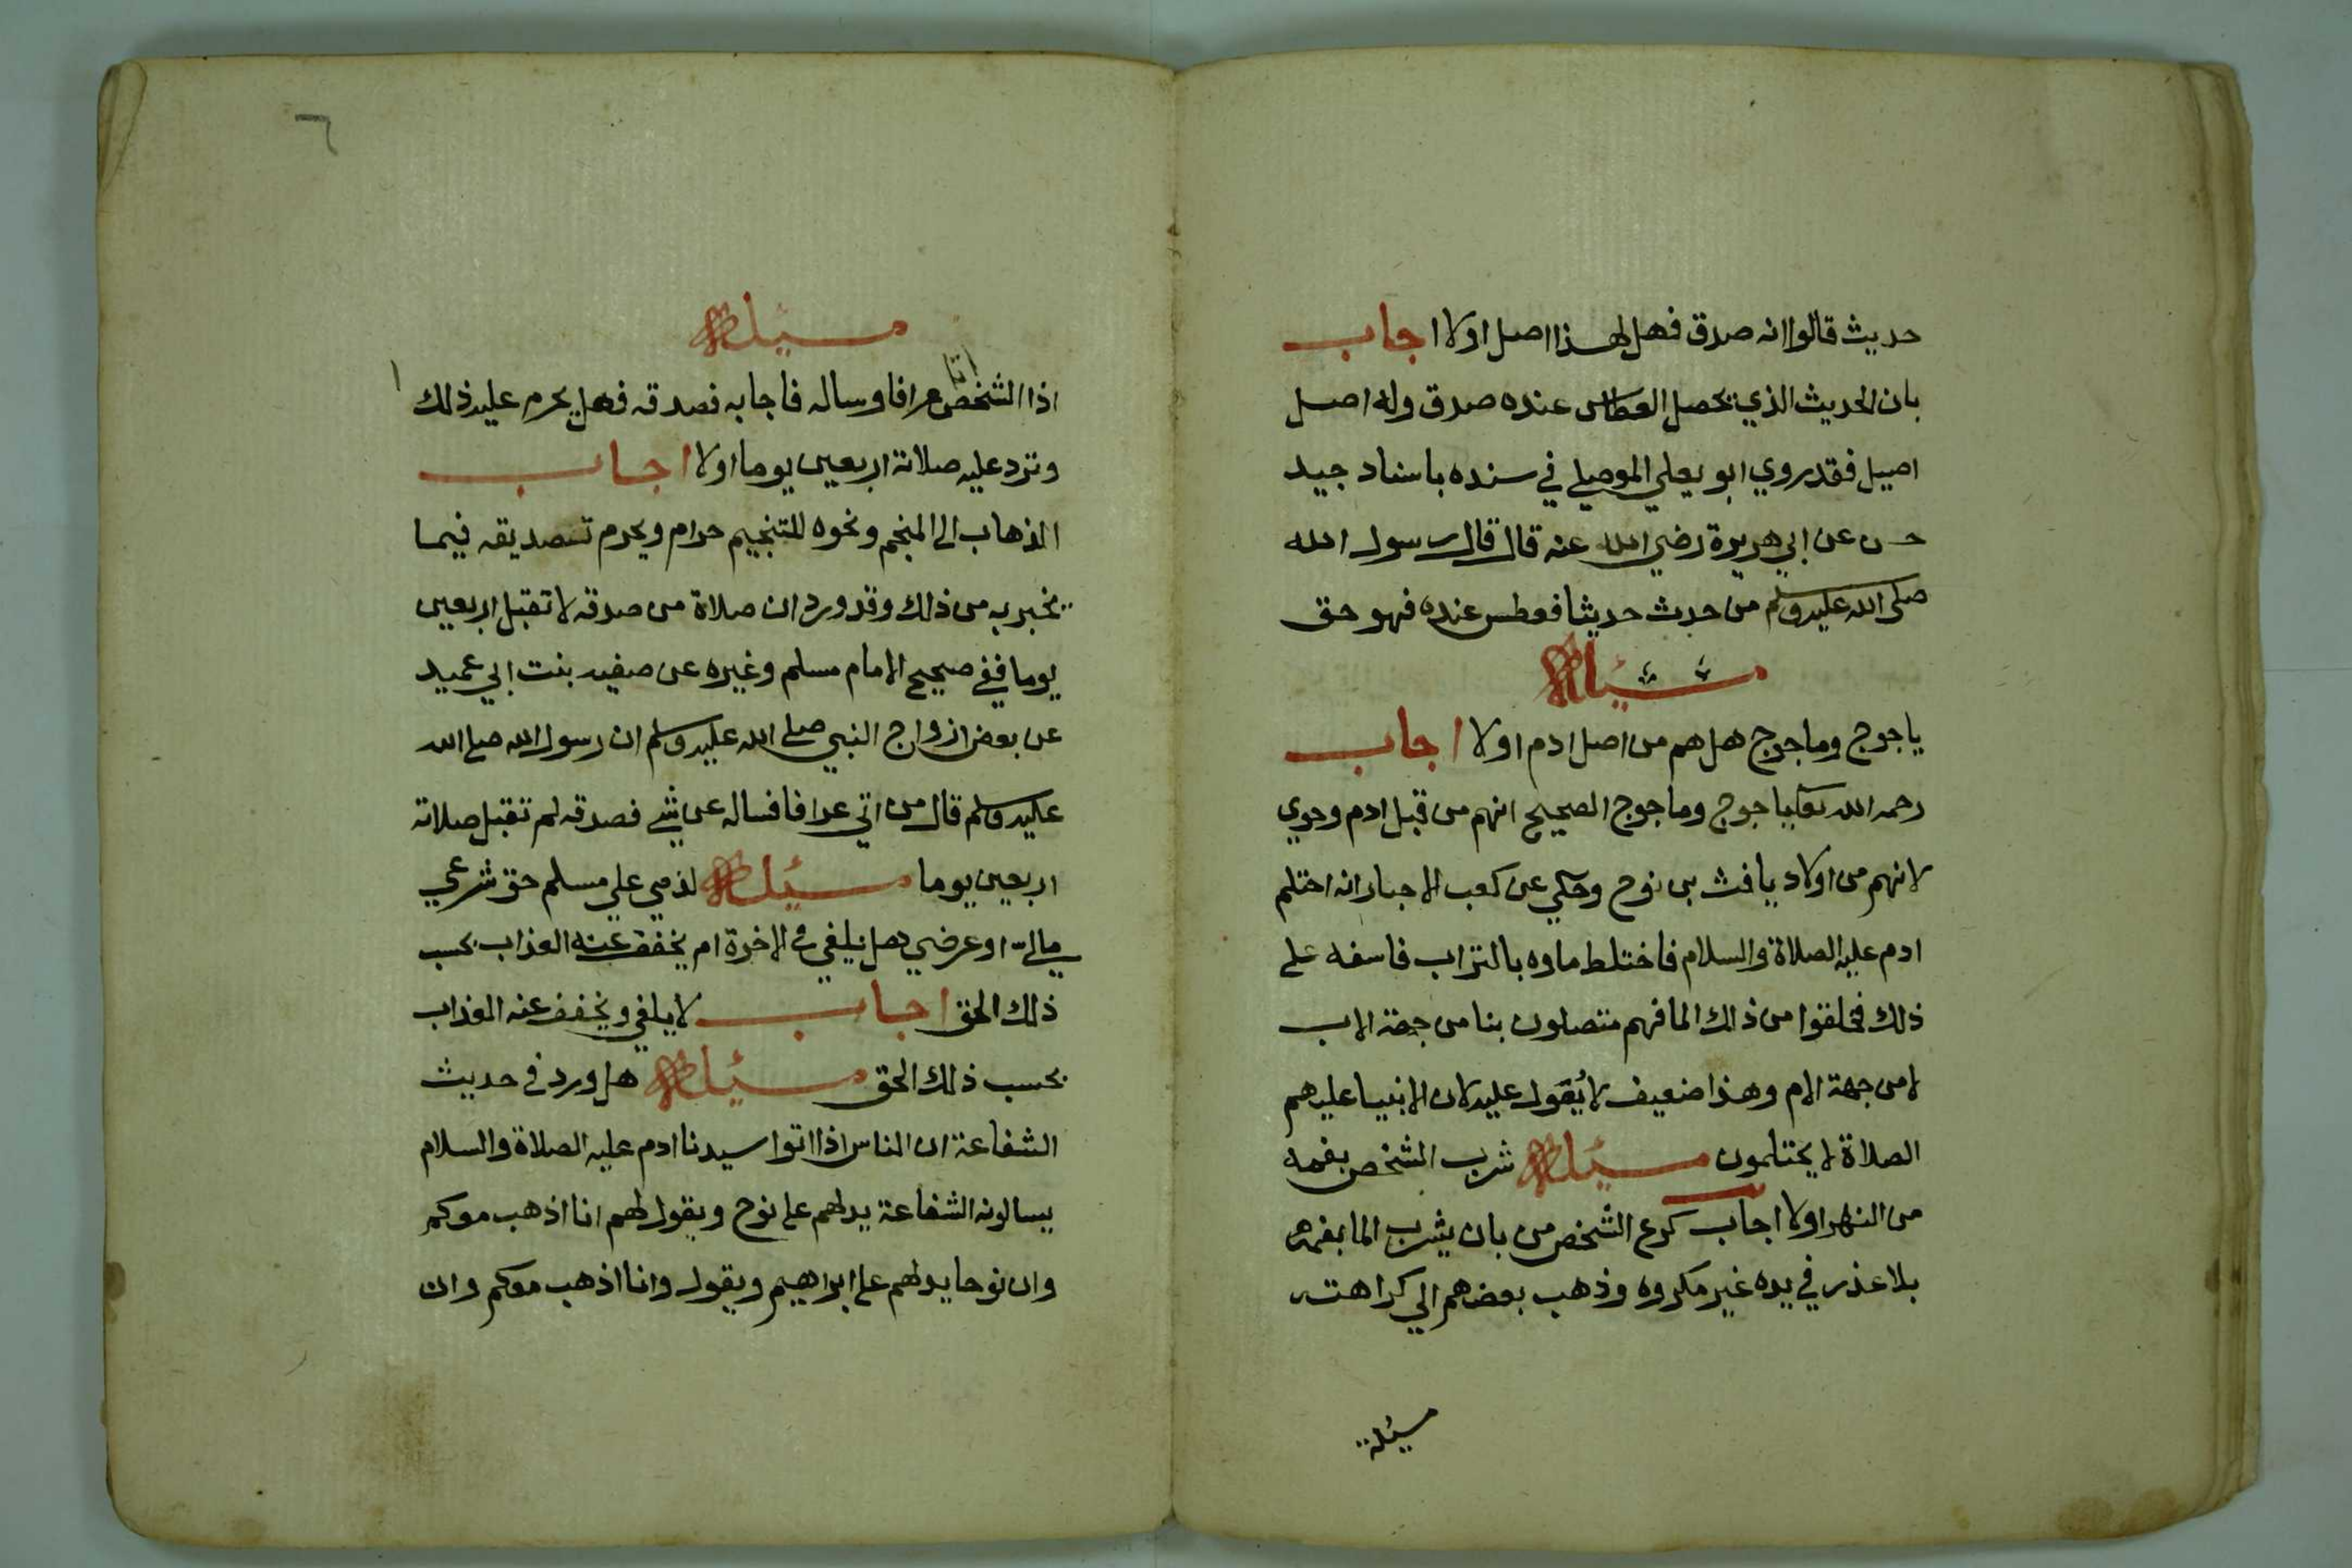 حديث قالوا انه صدق فهل لهذا اصل اولا اجاب
بان الحديث الذي يحصل العطاس عنده صدق وله اصل
اصيل فقد روي ابو يعلي الموصلي في سنده باسناد جيد
حسن عن ابي هريرة رضي الله عنه قال قال رسول الله
صلى الله عليه وسلم من حدث حديثا فعطس عنده فهو حق
مسئلة
ياجوج وماجوج هل هم من اصل ادم اولا اجاب
رحمه الله تعا ياجوج وماجوج الصحيح انهم من قبل ادم وحوي
لانهم من اولاد يافث بن نوح وحكي عن كعب الاحبار انه احتلم
ادم عليه الصلاة والسلام فاختلط ماوه بالتراب فاسفه على
ذلك فخلقوا من ذلك الما فهم متصلون بنا من جهة الاب
لا من جهة الام وهذا ضعيف لا يُعَول عليه لان الانبيا عليهم
الصلاة لا يحتلمون مسئلة شرب الشخص بفمه
من النهر اولا اجاب كرع الشخص من بان يشرب الما بفمه
بلا عذر في يده غير مكروه وذهب بعضهم الي كراهته
مسئلة
٦
مسئلة
اذا اتا الشخص عرافا وساله فاجابه فصدقه فهل يحرم عليه ذلك
وترد عليه صلاتة اربعين يوما اولا اجاب
الذهاب الى المنجم ونحوه للتنجيم حرام ويحرم تصديقه فيما
يخبر به من ذلك وقد ورد ان صلاة من صدقه لا تقبل اربعين
يوما ففي صحيح الامام مسلم وغيره عن صفيه بنت ابي عبيد
عن بعض ازواج النبي صلى الله عليه وسلم ان رسول الله صلى الله
عليه وسلم قال من اتي عرافا فساله عن شي فصدقه لم تقبل صلاته
اربعين يوما مسئلة لذمي علي مسلم حق شرعي
مالي او عرضي هل يلغي في الاخرة ام يخفف عنه العذاب بحسب
ذلك الحق اجاب لا يلغي ويخفف عنه العذاب
بحسب ذلك الحق مسئلة هل ورد في حديث
الشفاعة ان الناس اذا اتوا سيدنا ادم عليه الصلاة والسلام
يسالونه الشفاعة يدلهم على نوح ويقول لهم انا اذهب معكم
وان نوحا يدلهم على ابراهيم ويقول وانا اذهب معكم وان